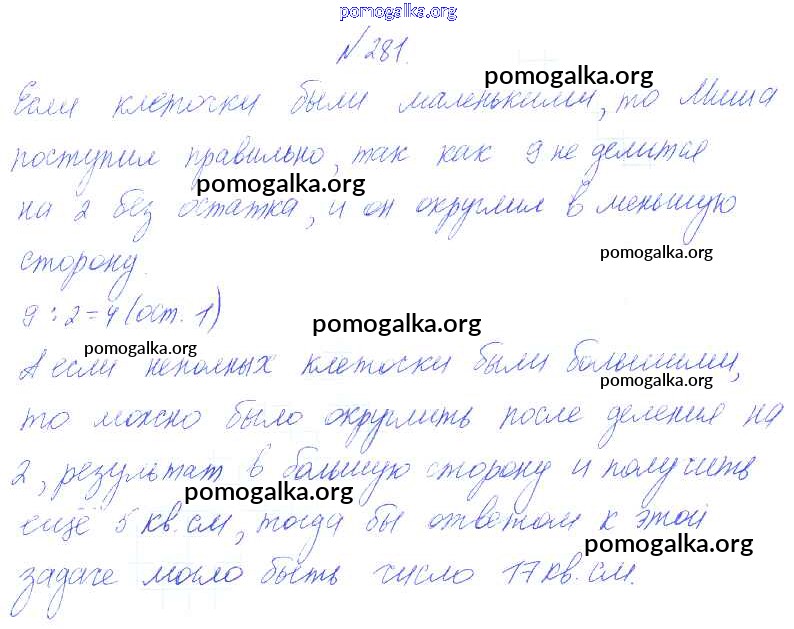 pomogalka.org
№ 281.
pomogalka.org
Если клеточки были маленькими, то Миша
поступил правильно, так как 9 не делится
pomogalka.org
на 2 без остатка, и он округлил в меньшую
pomogalka.org
сторону.
9 : 2 = 4 (ост. 1)
pomogalka.org
pomogalka.org
А если неполных клеточки были большими,
pomogalka.org
то можно было округлить после деления на
2, результат в большую сторону и получить
pomogalka.org
ещё 5 кв. см, тогда бы ответом к этой
pomogalka.org
задаче могло быть число 17 кв. см.